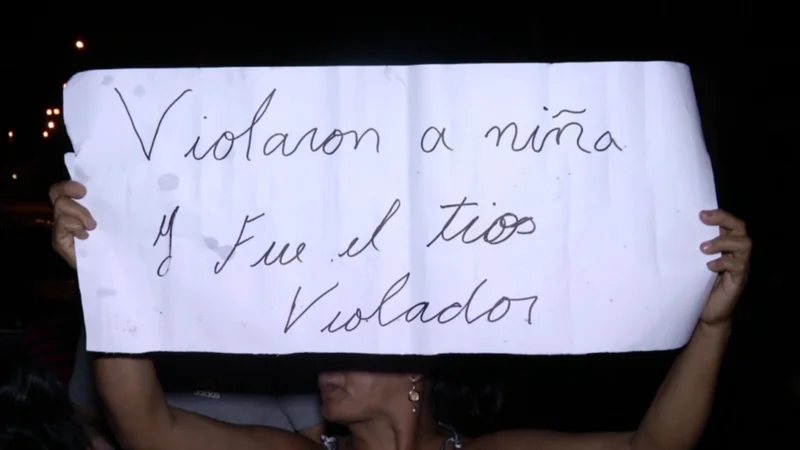 Violaron a niña
y Fue el tios
Violador